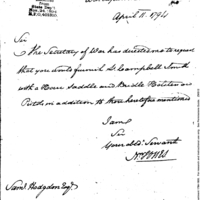 April 11. 1794
Sir
The Secretary of War has directed me to request
that you would furnish Lt. Campbell Smith
with a Horse Saddle and Bridle
Pistols in addition to those heretofore mentioned
I am
Sir
Your obt. Servant
Saml. Hodgdon Esqr.